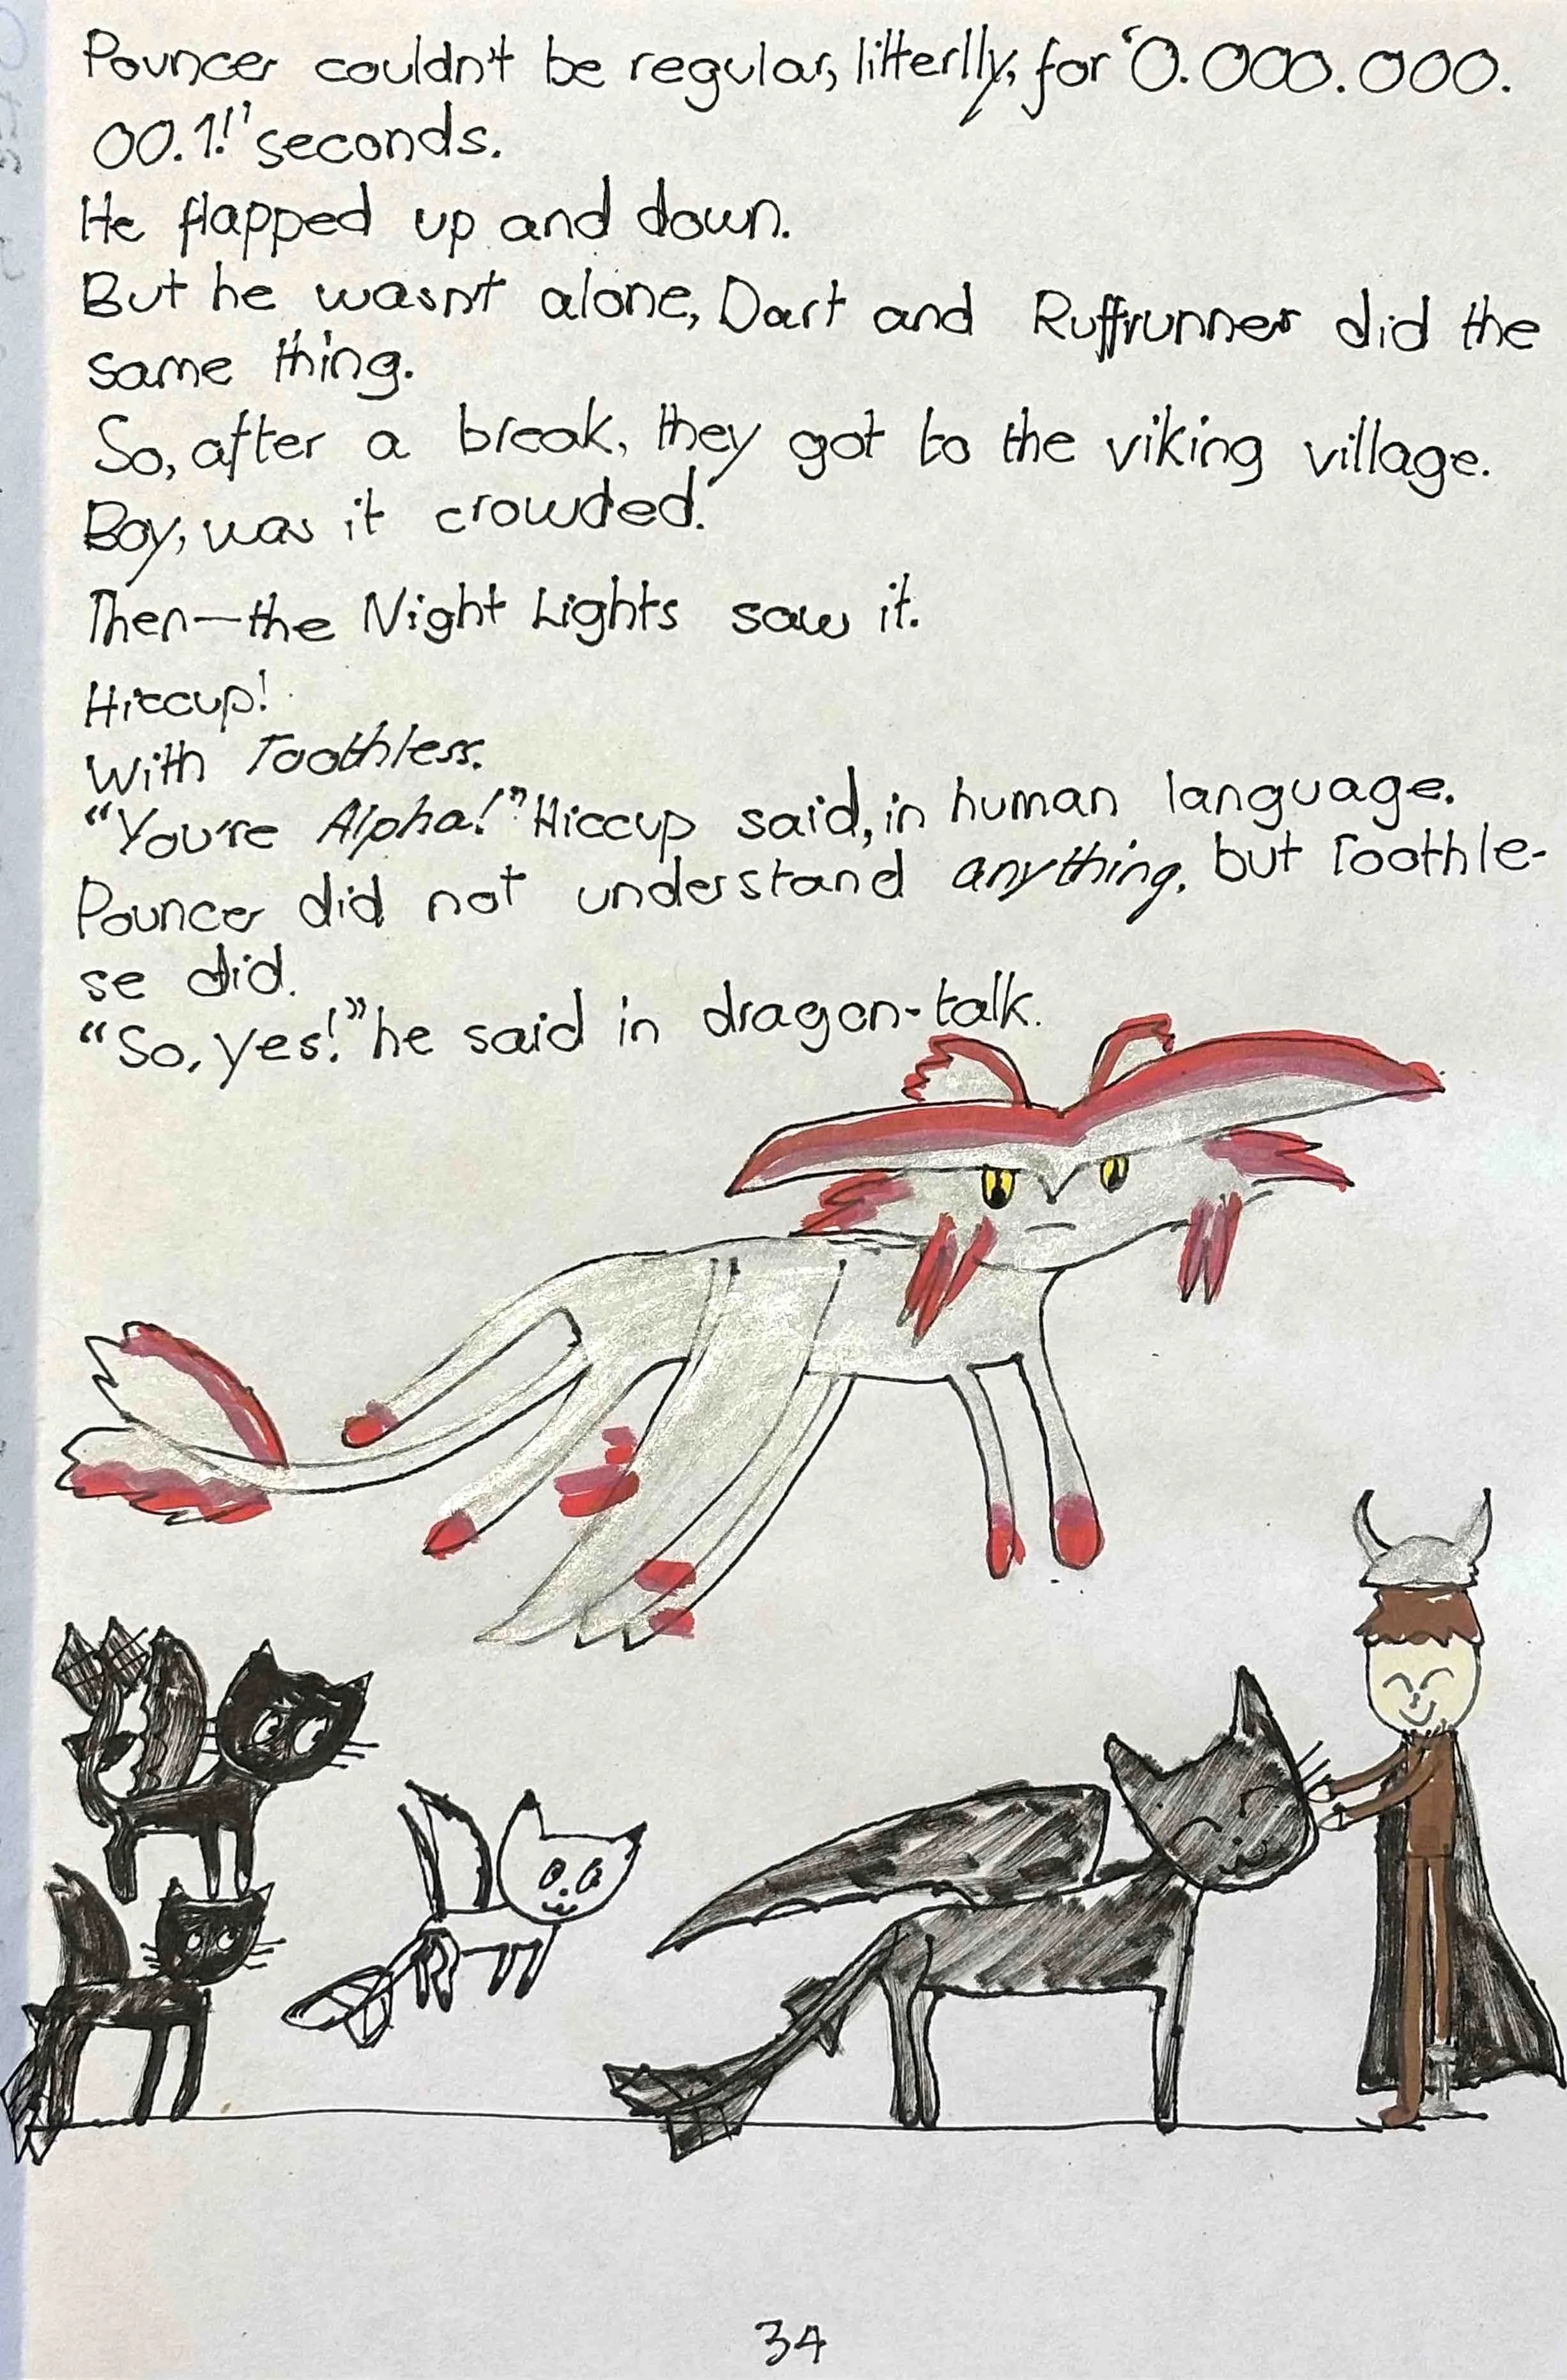 Pouncer couldn't be regular, litterlly, for "0.000.000.
00.1!" seconds.
He flapped up and down.
But he wasnt alone, Dart and Ruffrunner did the
same thing.
So, after a break, they got to the viking village.
Boy, was it crowded!
Then—the Night Lights saw it.
Hiccup!
With Toothless.
"You're Alpha!" Hiccup said, in human language.
Pouncer did not understand anything, but Toothle-
se did.
"So, yes!" he said in dragon-talk.
34